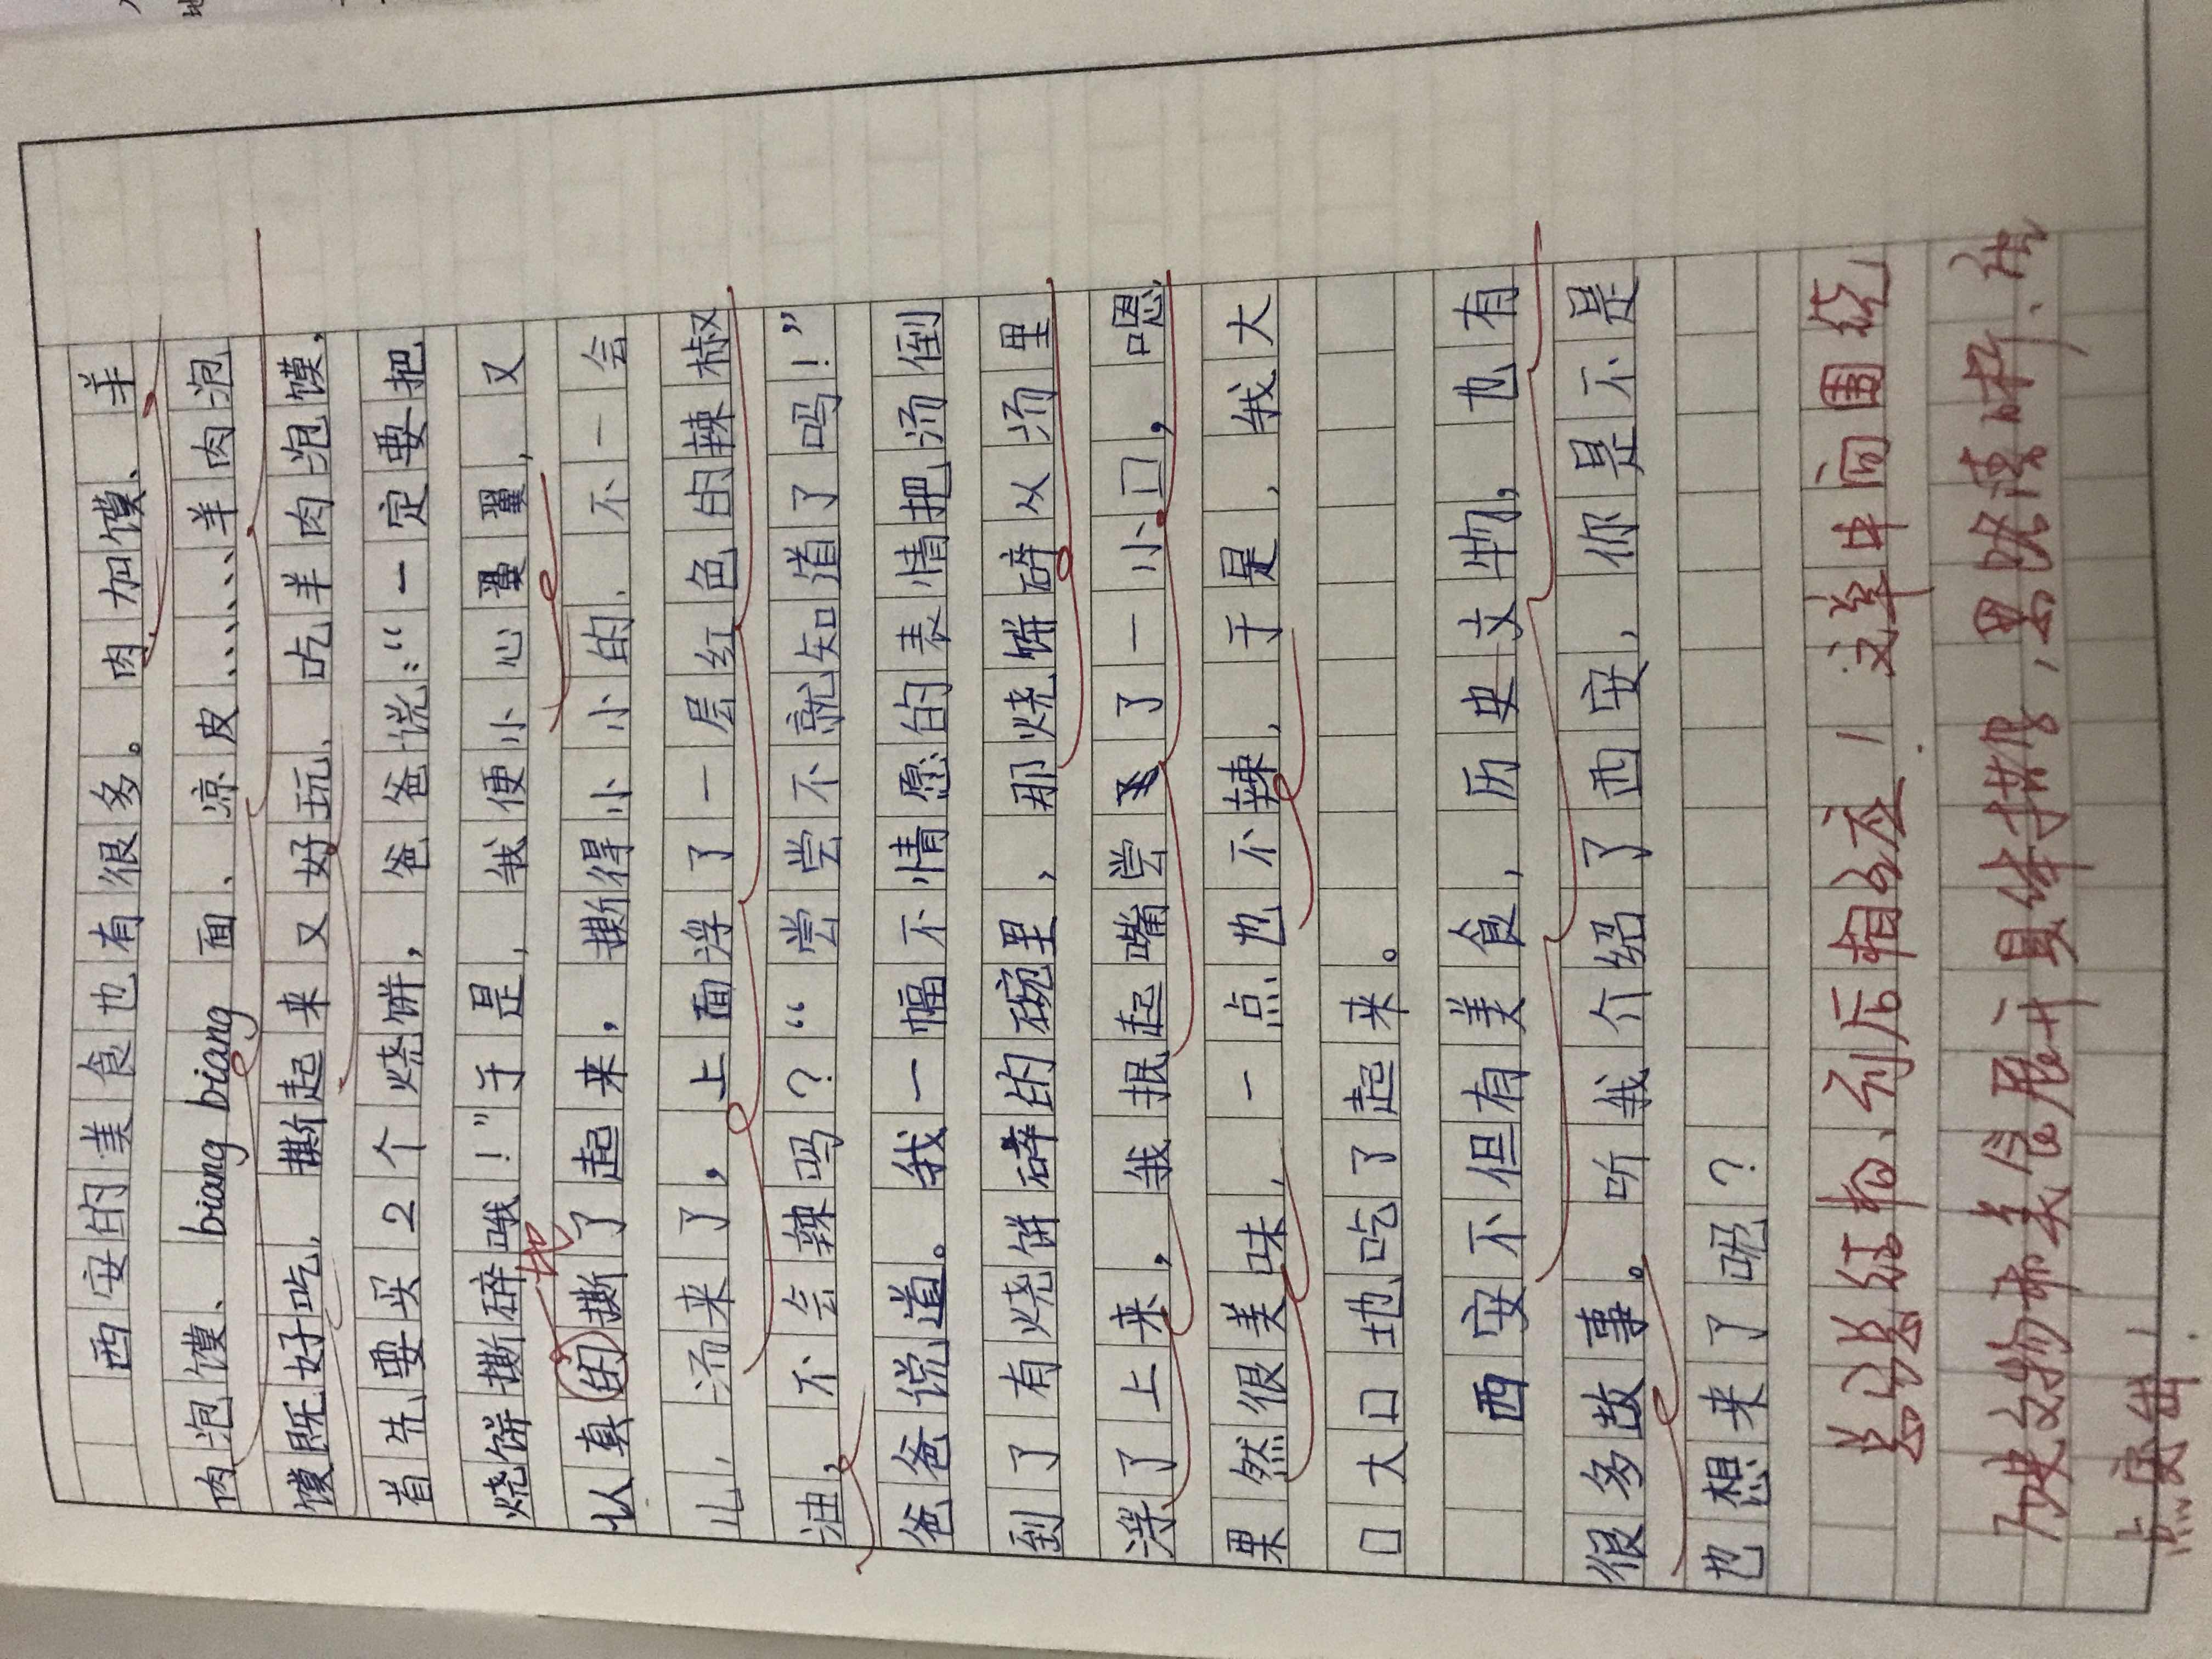 西安的美食也有很多。肉加馍、羊
肉泡馍、biang biang面、凉皮、、、、、、羊肉泡
馍既好吃，撕起来又好玩、吃羊肉泡馍，
首先要买2个烧饼，爸爸说：“一定要把
烧饼撕碎哦！”于是，我便小心翼翼，又
认真的撕了起来，撕得小小的、不一会
地
儿，汤来了，上面浮了一层红色的辣椒
油，不会辣吗？“尝尝不就知道了吗！”
爸爸说道。我一幅不情愿的表情把汤倒
到了有烧饼碎的碗里，那烧饼碎从汤里
浮了上来，我抿起嘴尝了一小口，嗯
果然很美味，一点也不辣，于是，我大
口大口地吃了起来。
西安不但有美食，历史文物，也有
很多故事。听我介绍了西安，你是不是
也想来了呢？
总结棒、前后相应！文章中间围绕
历史文物和美食展开具体描写，思路清晰、重
点突出！